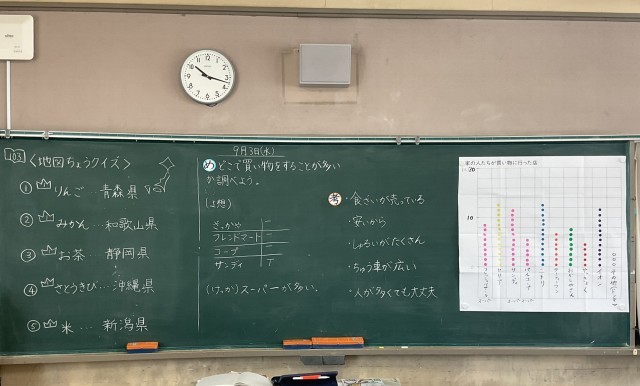 103
〈地図ちょうクイズ〉
① りんご…青森県
② みかん…和歌山県
③ お茶…静岡県
④ さとうきび…沖縄県
⑤ 米…新潟県
9月3日(水)
め どこで買い物をすることが多い
か調べよう。
(よ想)
さっかや
フレンドマート
コープ
サンディ
(けっか)スーパーが多い。
考
・食ざいが売っている
・安いから
・しゅるいがたくさん
・ちゅう車が広い
・人が多くても大丈夫
家の人たちが買い物に行った店
20
10